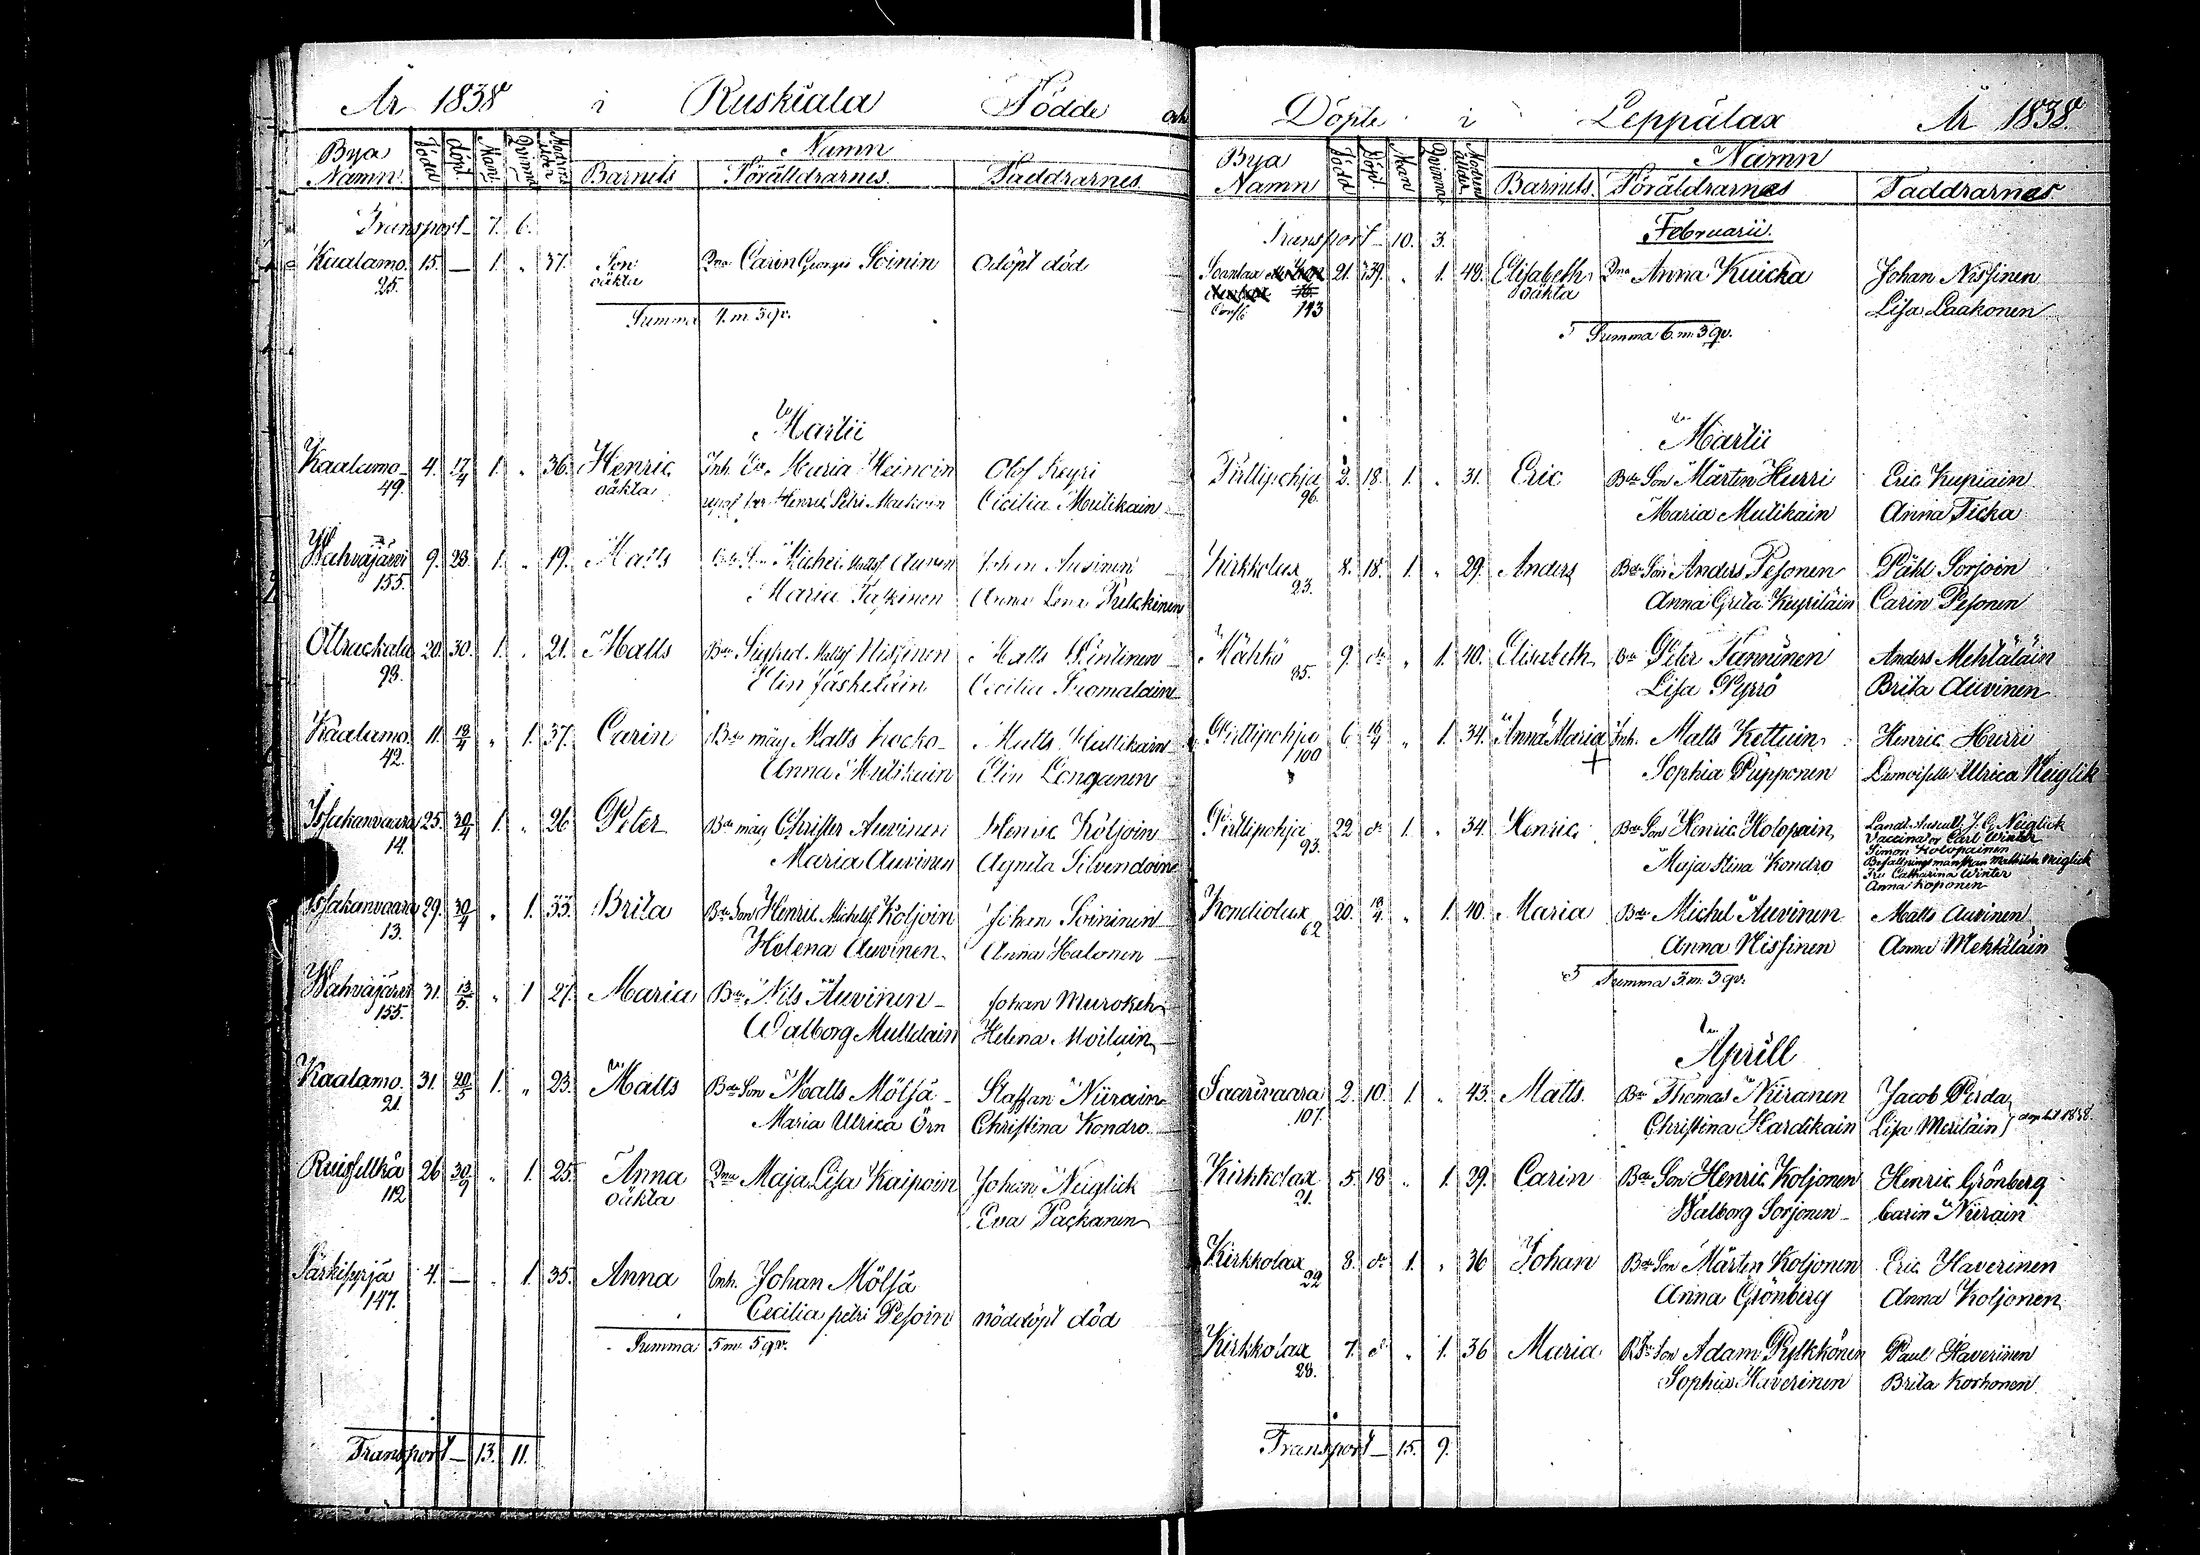 År 1838 i Ruskiala Födde och
Bya Namn. Född döpt. Mank. Qvinnk. Modrens ålder Namn
Barnets Föräldrarnes. Faddrarnes
Transport 7. 6.
Kaalamo. 15. — 1. „ 37. Son Qna Carin Georgii Soinin Odöpt död
25. oäkta
Summa 4. m. 3 qv.
Martii
Kaalamo 4. 17/4 1. „ 36. Henric Inh. Maria Heinoin Olof Keyri
49. oäkta Henric Petri Cicilia Mutikain
Wahvajärvi 9. 23. 1. „ 19. Matts Michel Matts Auvin Johan Auvinen
155. Maria Anna Lena
Otrackala 20. 30. 1. „ 21. Matts Bde Sigfred Matts Nissinen Matts Pentinen
93. Elin Jäskeläin Cecilia Tromalaine
Kaalamo. 11. 13/4 „ 1. 37. Carin Bde måg Matts Locko Matts Mutikain
42. Anna Mutikain Elin Longanen
Issakanvaara 25. 30/4 1. „ 26 Peter Bde måg Christer Auvinen Henric Koljoin
14. Maria Auvinen Agneta Silvendoine
Issakanvaara 29. 30/4 „ 1. 33. Brita Bde Son Henric Michelss Koljoin Johan Soininen
13. Helena Auvinen. Anna Halonen
Wahvajärvi 31. 13/5. „ 1 27. Maria Bde Nils Auvinen Johan Muroke
155. Walborg Mulldain Helena Moilain
Kaalamo. 31. 20/5 1. „ 23. Matts Bde Son Matts Mölsä Staffan Niirain
21. Maria Ulrica Örn Christina Kondro
Ruisselkä 26 30/9 „ 1. 25. Anna Qna Maja Lisa Kaipoin Johan Neiglick
112 oäkta Eva Packanen
Särkisyrjä 4. — „ 1. 35. Anna Inh. Johan Mölsä
147. Cecilia petri Pesoin nöddöpt död
Summa 5 m. 5 qv.
Transport 13. 11.
Döpte i Leppälax År 1838.
Bya Namn Född Döpt Man Qvinna Modrens ålder Namn
Barnets. Föräldrarnes Faddrarnes
Transport 10. 3. Februarii.
Soanlax 21. 739. „ 1. 49. Elisabeth Qna Anna Kuicka Johan Nissinen
143 oäkta Lisa Laakonen
Summa 6. m. 3 qv.
Martii
Pirttipohja 2. 18. 1. „ 31. Eric Bde Son Mårten Hurri Eric Kupiain
96. Maria Mutikain Anna Ticka
Kirkkolax 8. 18. 1. „ 29. Anders Bde Son Anders Pesonen Påhl Sorjoin
23. Anna Greta Keyriläin Carin Pesonen
Mähkö 9. do „ 1. 40. Elisabeth Bde Peter Tanninen Anders Mehtäläin
85. Lisa Pyrrö Brita Auvinen
Pirttipohja 6 13/4 „ 1. 34. Anna Maria Inh. Matts Kettuin Henric Hurri
100 Sophia Pupponen Demoiselle Ulrica Neiglik
Pirttipohja 22 do 1. „ 34. Henric Bde Son Henric Holopain Landt J. G. Neiglick
93. Maja Stina Kondro Vaccinator Carl Winter
Simon Holopainen
Befallningsmanskan Mathilda Neiglick
Fru Catharina Winter
Anna Koponen
Kondiolax 20. 13/4. „ 1. 40. Maria Bde Michel Auvinen Matts Auvinen
62 Anna Nissinen Anna Mehtäläin
Summa 3. m. 3 qv.
Aprill
Saarivaara 2. 10. 1 „ 43. Matts. Bde Thomas Niiranen Jacob Perda
107. Christina Hardikain Lisa Meriläin
Kirkkolax 5. 18 „ 1. 29. Carin Bde Son Henric Koljonen Henric Grönberg
21. Walborg Sorjonen Carin Niirain
Kirkkolax 8. do 1. „ 36 Johan Bde Son Mårten Koljonen Eric Haverinen
22 Anna Grönberg Anna Koljonen
Kirkkolax 7. do „ 1. 36 Maria Bde Son Adam Pylkkönen Paul Haverinen
28. Sophia Haverinen Brita Korhonen
Transport 15. 9.